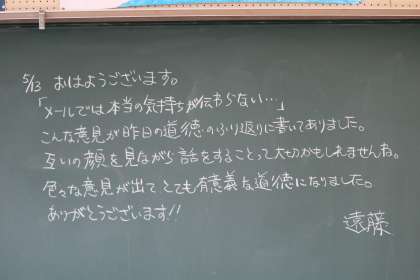 5/13 おはようございます。
「メールでは本当の気持ちが伝わらない…」
こんな意見が昨日の道徳のふり返りに書いてありました。
互いの顔を見ながら話をすることって大切かもしれませんね。
色々な意見が出てとても有意義な道徳になりました。
ありがとうございます!!
遠藤